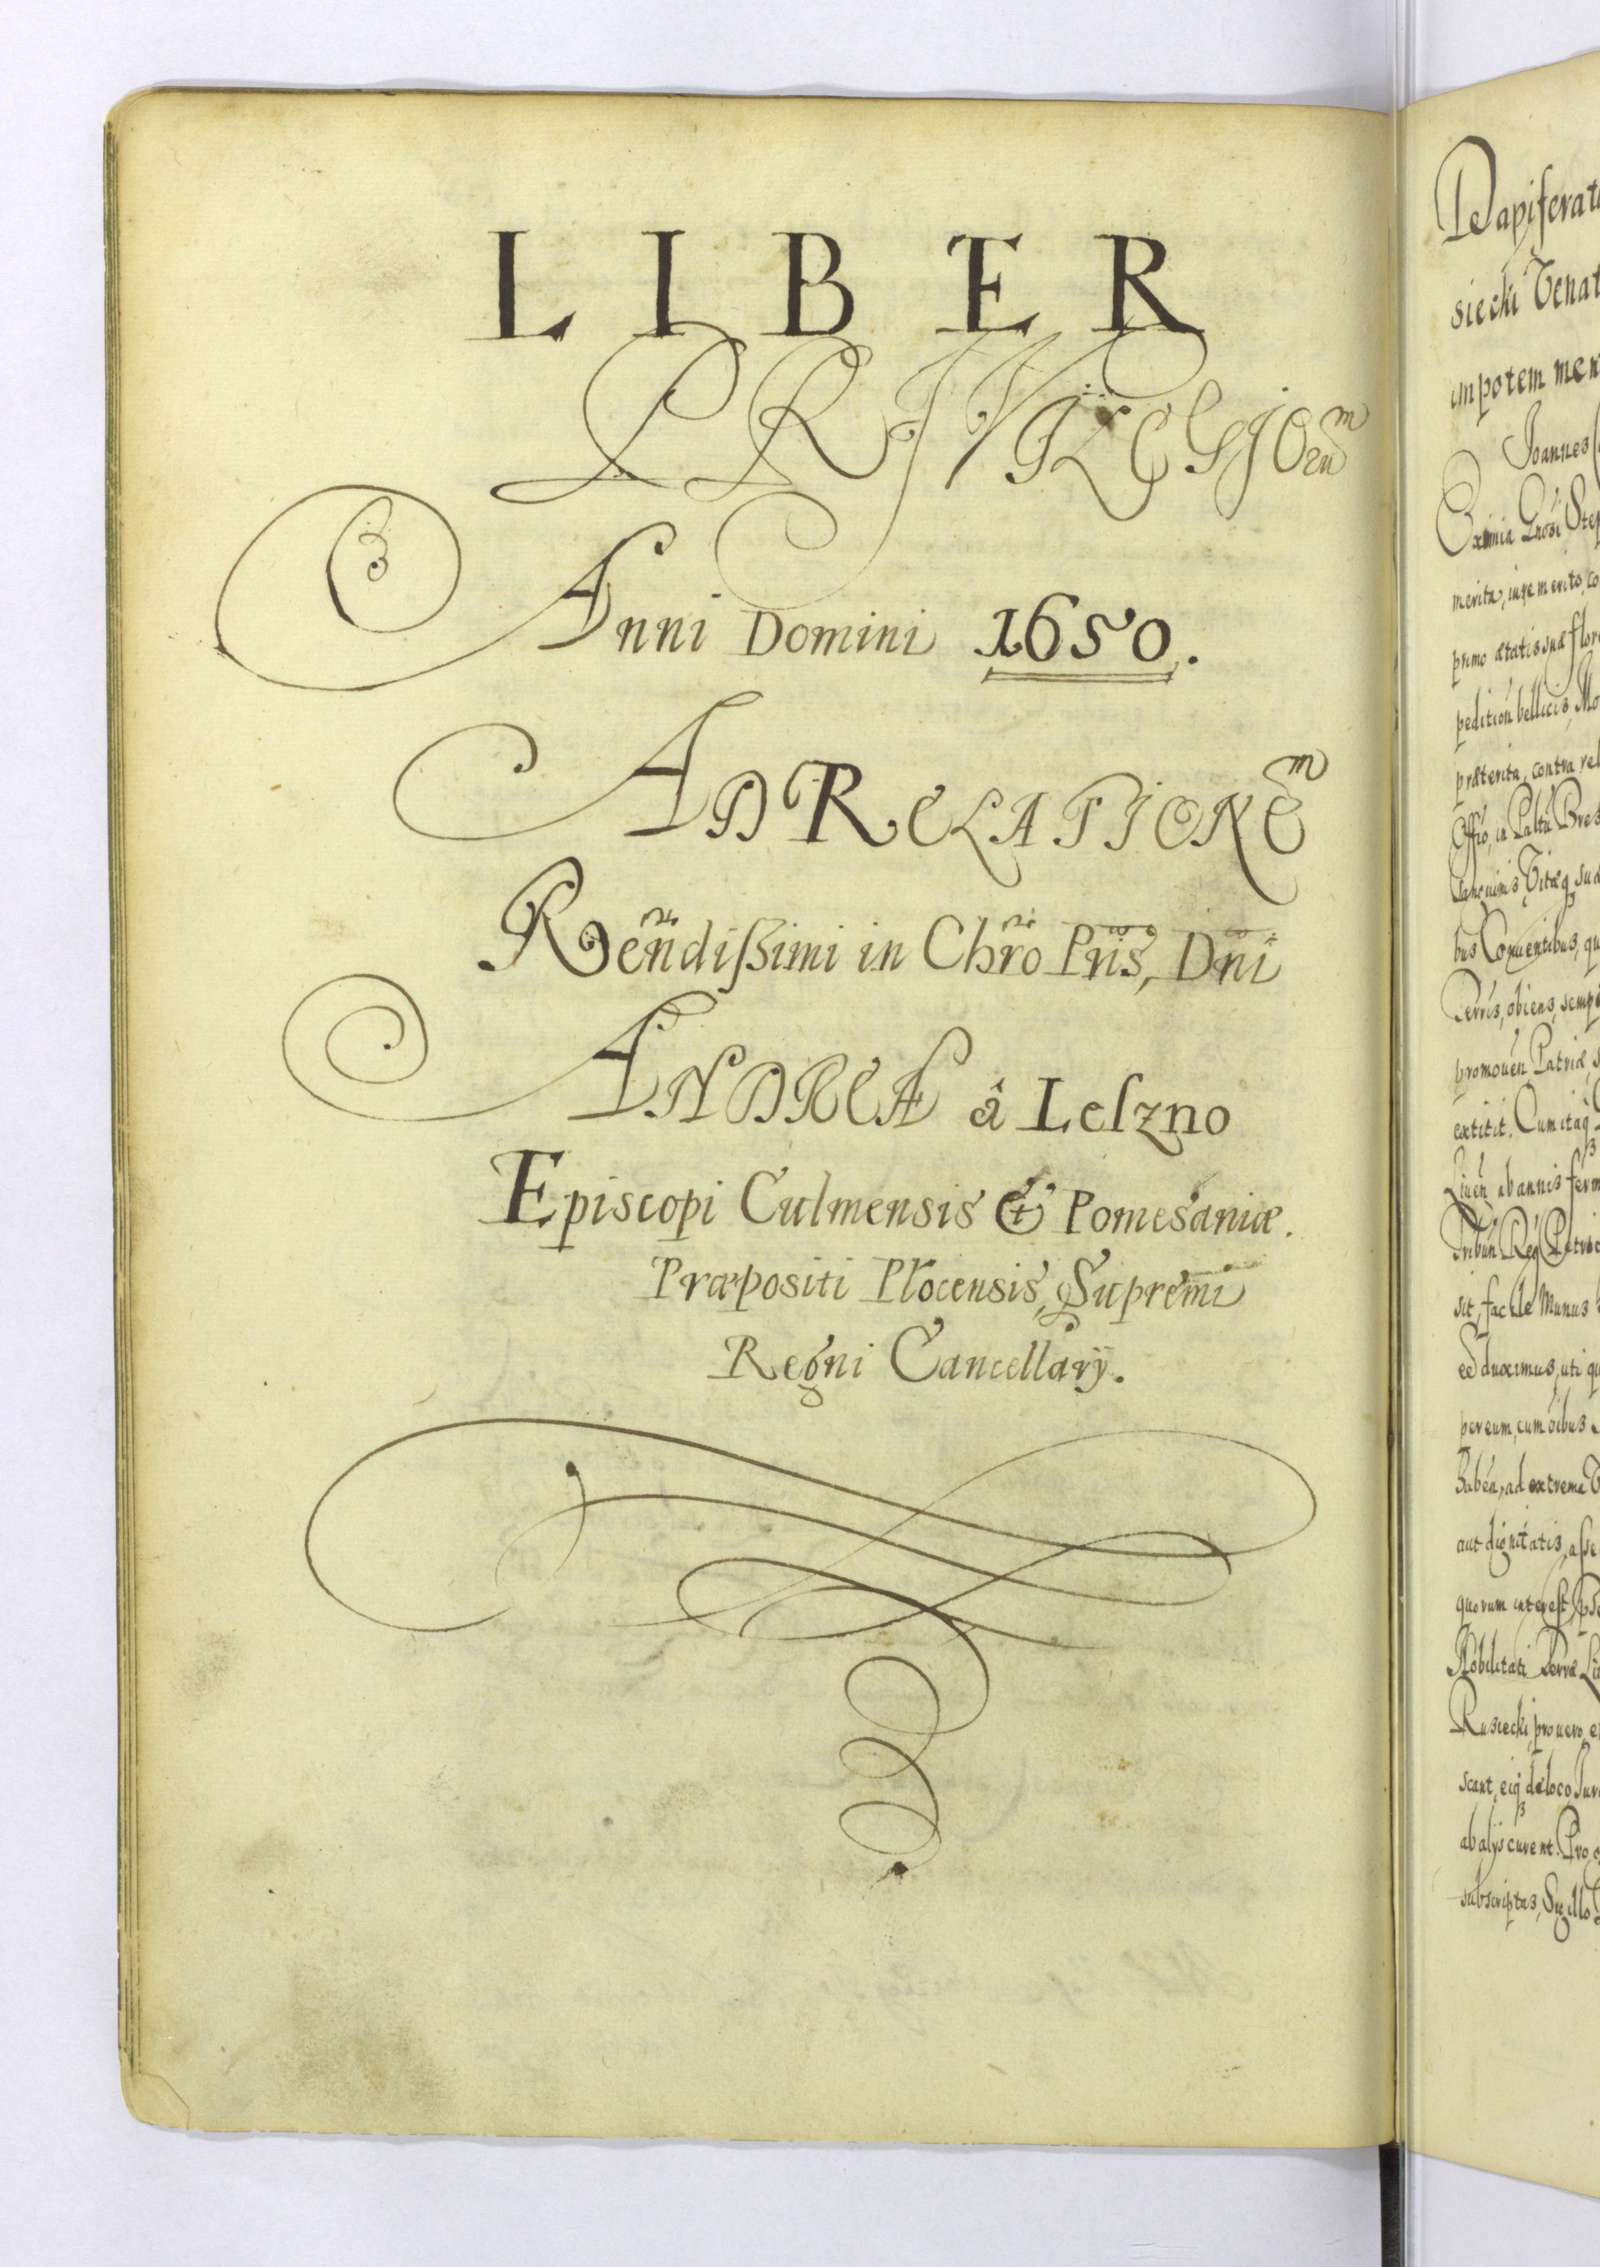 LIBER
PRIVILEGIOrum
Anni Domini 1650.
AD RELATIONEm
Reñdissimi in Chr̃o P̃ris, Dñi
ANDREÆ â Leszno
Episcopi Culmensis & Pomesaniæ.
Præpositi Plocensis, Supremi
Regni Cancellarij.
Dapiferat
siecki Venat
impotem men
Joannes
Eximia Gnosi Step
merita, iure merito, co
primo ætatis suæ flor
pedition bellicis, Mo
præterita, contra rel
Offio, in Paltu Bres
Sanguinis Vitæq sua
bus Conuentibus, qu
Terris, obiens, semp
promouen Patriæ, s
extitit. Cum itaq
Liuen ab annis ferm
Tribun Reg Patric
sit, facile Munus
eê duximus, uti qu
per eum, cum oibus
haben, ad extrema
aut dignitatis, asse
quorum interest, pse
Nobilitati Terræ Li
Rusiecki, pro uero, e
scant, eiq de loco, Iur
ab alijs curent. Pro
subscriptas, Sigillo